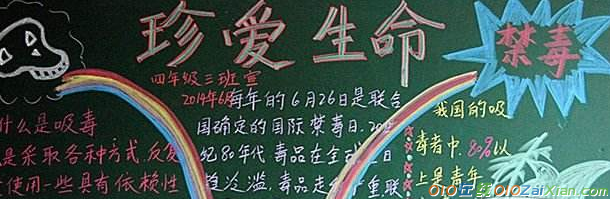 珍爱生命
禁毒
四年级三班宣
2014年6月
什么是吸毒
是采取各种方式,反复
使用一些具有依赖性
每年的6月26日是联合
国确定的国际禁毒日.20世
纪80年代毒品在全球日
趋泛滥,毒品走 重,联
我国的吸
毒者中,80%以
上是青年
010在线 010ZaiXian.com